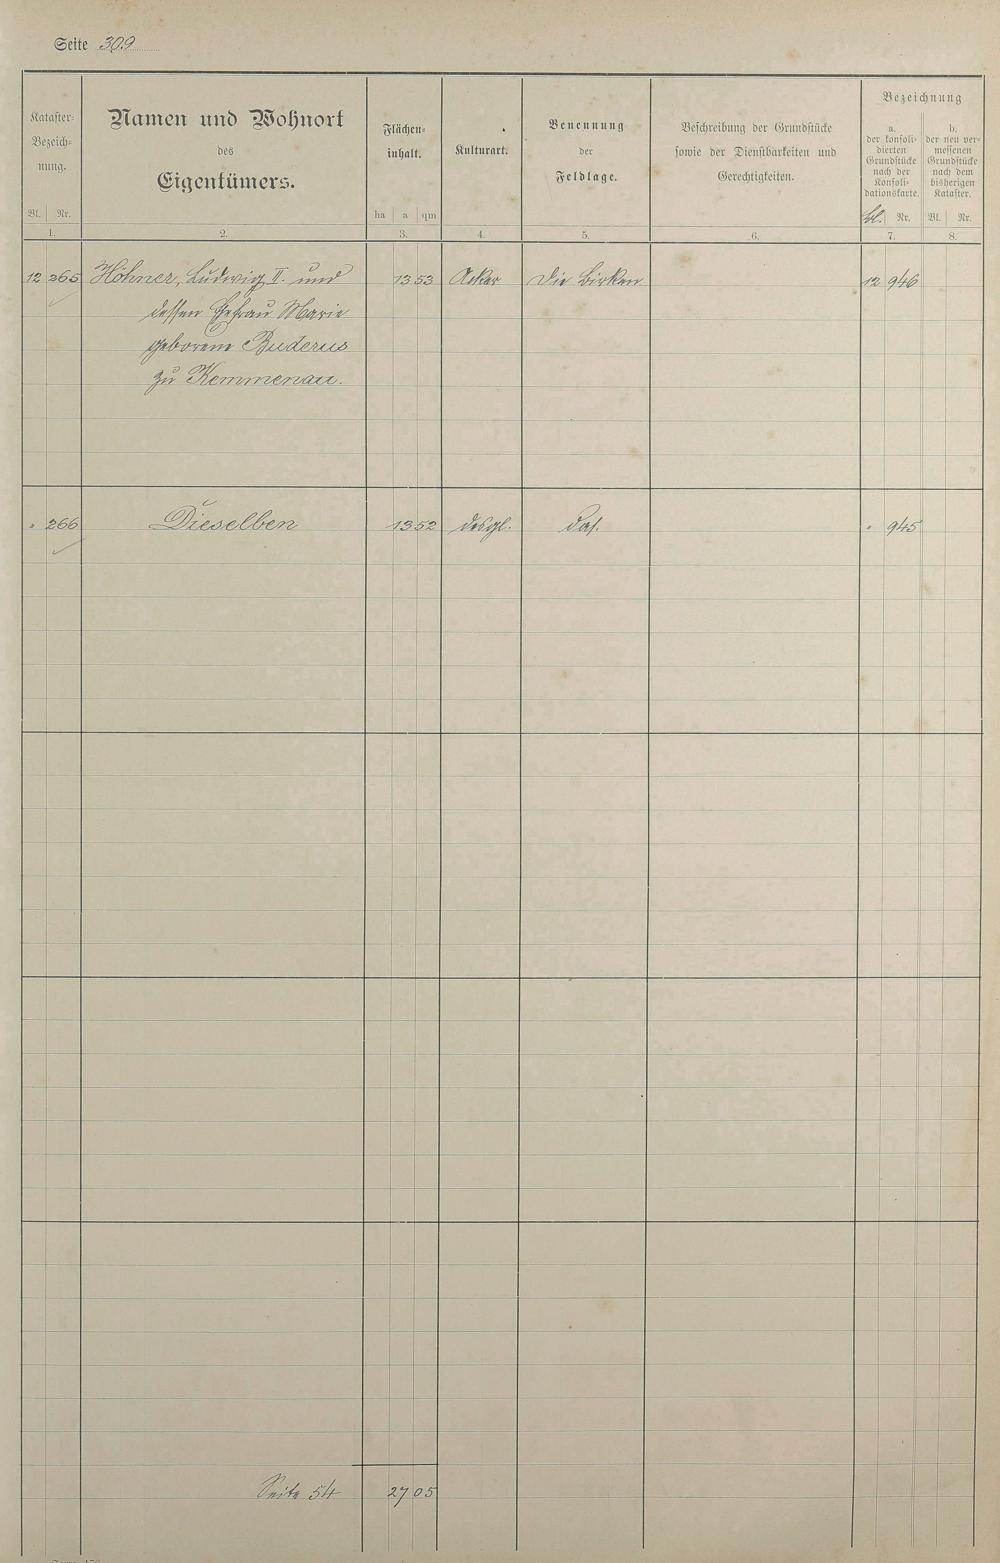 Seite 309
Kataster-
Bezeich-
nung.
Bl. Nr.
1.
Namen und Wohnort
des
Eigentümers.
2.
Flächen-
inhalt.
ha a qm
3.
Kulturart.
4.
Benennung
der
Feldlage.
5.
Beschreibung der Grundstücke
sowie der Dienstbarkeiten und
Gerechtigkeiten.
6.
Bezeichnung
a.
der konsoli-
dierten
Grundstücke
nach der
Konsoli-
dationskarte.
Bl. Nr.
7.
b.
der neu ver-
messenen
Grundstücke
nach dem
bisherigen
Kataster.
Bl. Nr.
8.
12 265 Höhner, Ludwig II. und 13 53 Acker Die Birken 12 946
dessen Ehefrau Marie
geborene Buderus
zu Kemmenau.
" 266 Dieselben 13 52 desgl. das. " 945
Seite 54 27 05